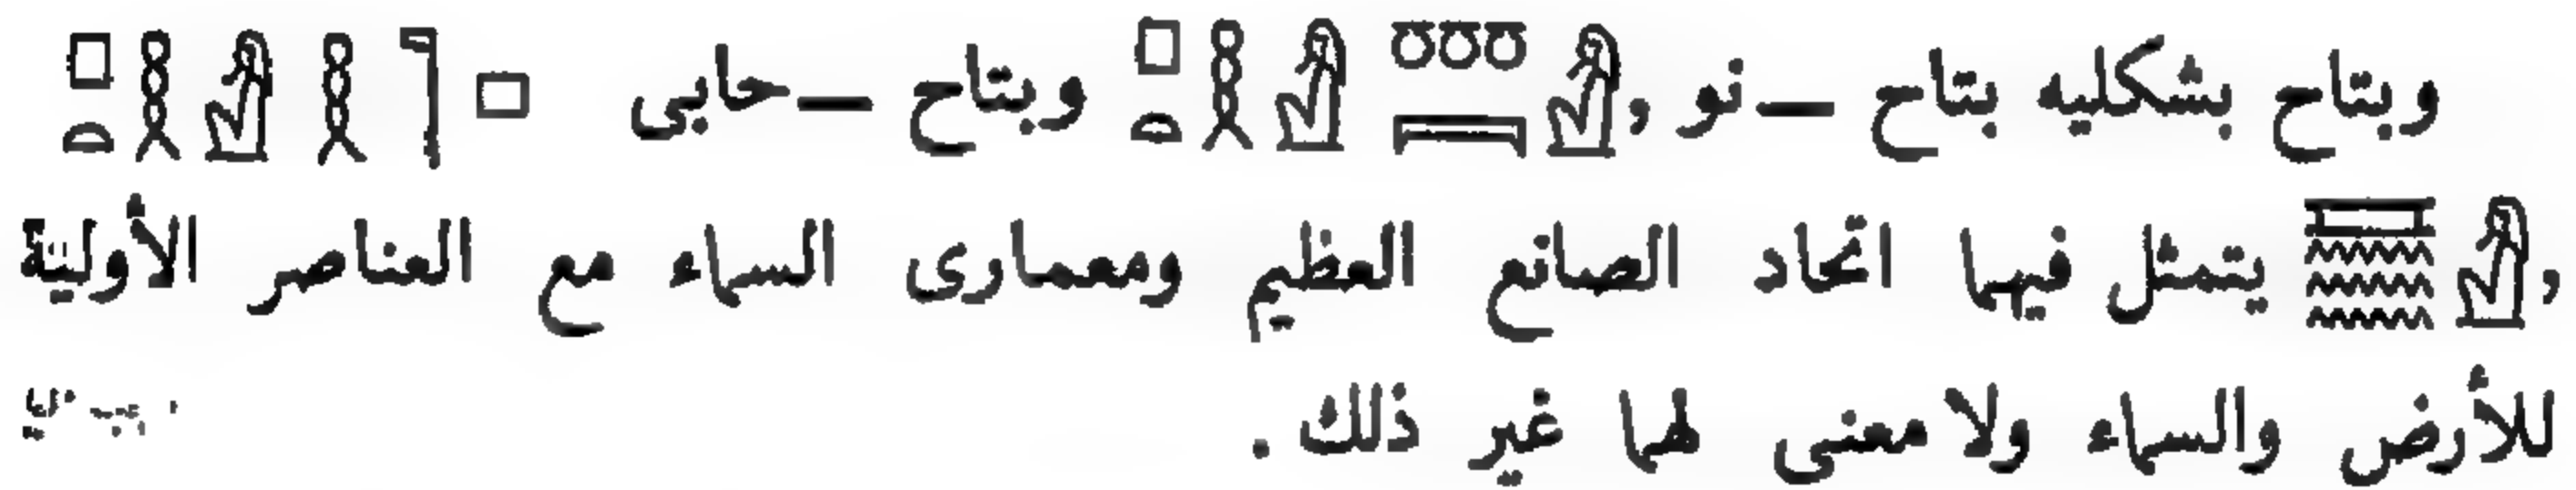 وبتاح بشكليه بتاح — نو 𓊪𓏏𓎛𓀭𓏌𓏌𓏌𓇯𓀭 , وبتاح — حابى 𓊪𓏏𓎛𓀭𓎛𓊹𓊪
𓈘𓈗𓀭 , يتمثل فيهما اتحاد الصانع العظيم ومعمارى السماء مع العناصر الأولية
للأرض والسماء ولا معنى لهما غير ذلك .